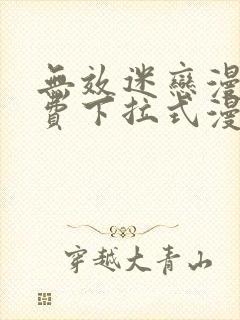 無效迷戀漫
費下拉式漫
穿越大青山